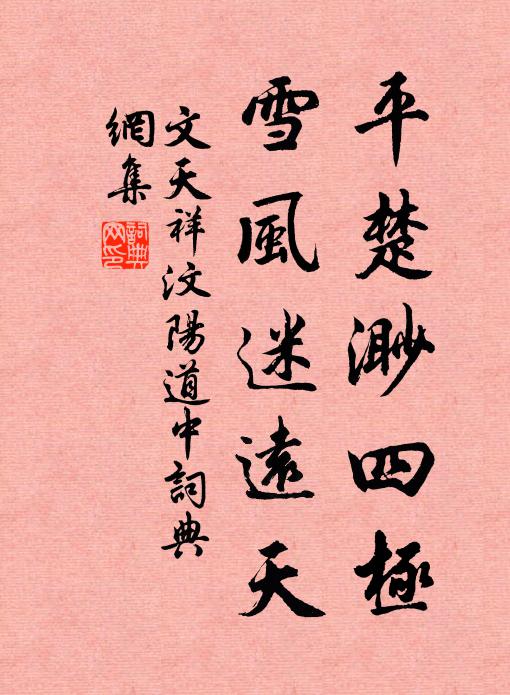 平楚渺四極
雪風迷遠天
文天祥汶陽道中詞典
網集
詞典
网印